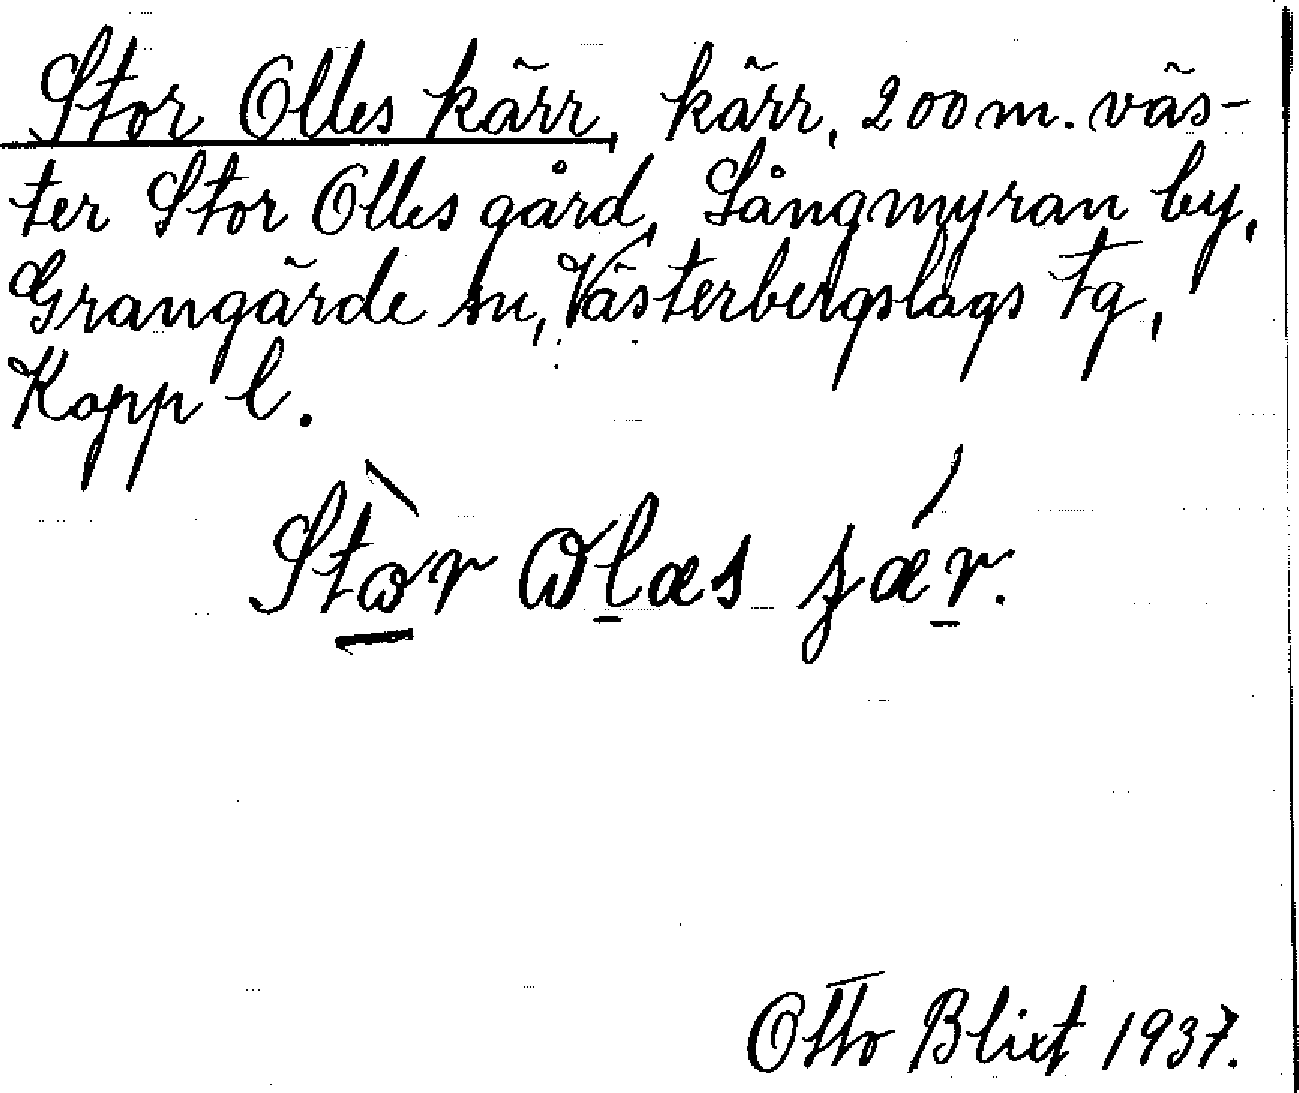 Stor Olles kärr, kärr, 200 m. väs-
ter Stor Olles gård, Långmyran by,
Grangärde sn, Västerbergslags Fg,
Kopp l.
Stòr Olæs jǽr.
Otto Blixt 1937.